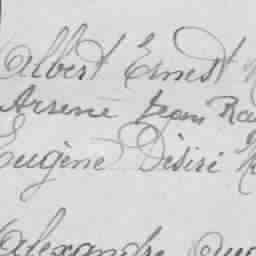 Albert Ernest
Arsene Jean
Eugène Désiré
Alexandre